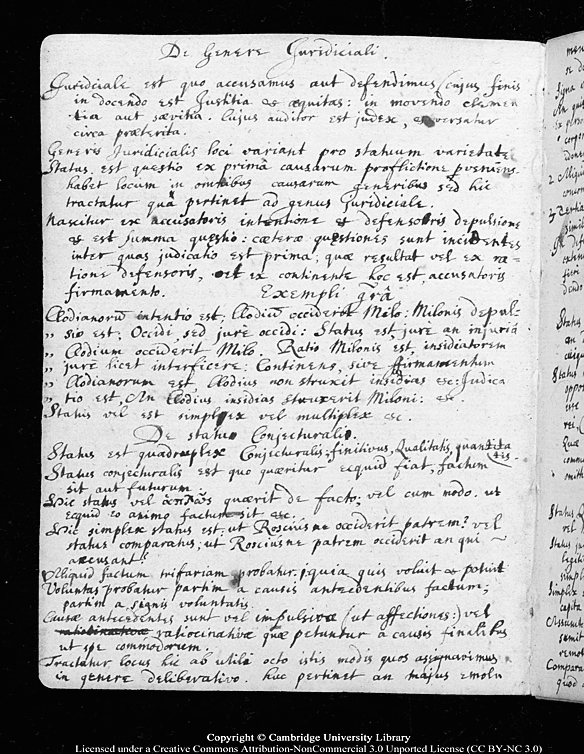 De Genere Juridiciali.
Juridiciale est quo accusamus aut defendimus cujus finis
in docendo est Justitia & æquitas: in movendo clemen
tia aut sævitia. Cujus auditor est judex, & versatur
circa præterita.
Generis Juridicialis loci variant pro statuum varietate
Status est questio ex primâ causarum proflictione
habet locum in omnibus causarum generibus sed hic
tractatur quâ pertinet ad genus Juridiciale.
Nascitur ex accusatoris intentione & defensoris depulsione
& est summa quæstio: cæteræ quæstiones sunt incidentes
inter quas judicatio est prima; quæ resultat vel ex ra-
tione defensoris, vel ex continente hoc est accusatoris
firmamento. Exempli grâ
Clodianorū intentio est, Clodiū occiderit Milo: Milonis depul-
" sio est: Occidi, sed jure occidi: Status est, jure an injuriâ
" Clodium occiderit Milo. Ratio Milonis est, insidiatorem
" jure licet interficere: Continens, sive firmamentum
" Clodianorum est, Clodius non struxit insidias &c: Judica
" tio est, An Clodius insidias struxerit Miloni: &c
Status vel est simplex vel multiplex &c.
De statu Conjecturali.
Status est quadruplex Conjecturalis, finitivus, Qualitatis, quantita
tis.
Status conjecturalis est quo quæritur ecquid fiat, factum
sit aut futurum.
Hic status vel quærit de facto; vel cum modo. ut
Ecquid eo animo factum sit &c.
Hic simplex status est: ut Rosciusne occiderit patrem? vel
status comparatus; ut Rosciusne patrem occiderit an qui ~
accusant?
Aliquid factum trifariam probatur. 1. quia quis voluit & potuit
Voluntas probatur partim a causis antecedentibus factum;
partim a signis voluntatis.
Causæ antecedentes sunt vel impulsivæ (ut affectiones:) vel
ratiocinativæ quæ petuntur a causis finalibus
ut spe commodorum.
Tractatur locus hic ab utili octo istis modis quos assignavimus
in genere deliberativo. huc pertinet an majus emolu
Copyright © Cambridge University Library
Licensed under a Creative Commons Attribution-NonCommercial 3.0 Unported License (CC BY-NC 3.0)